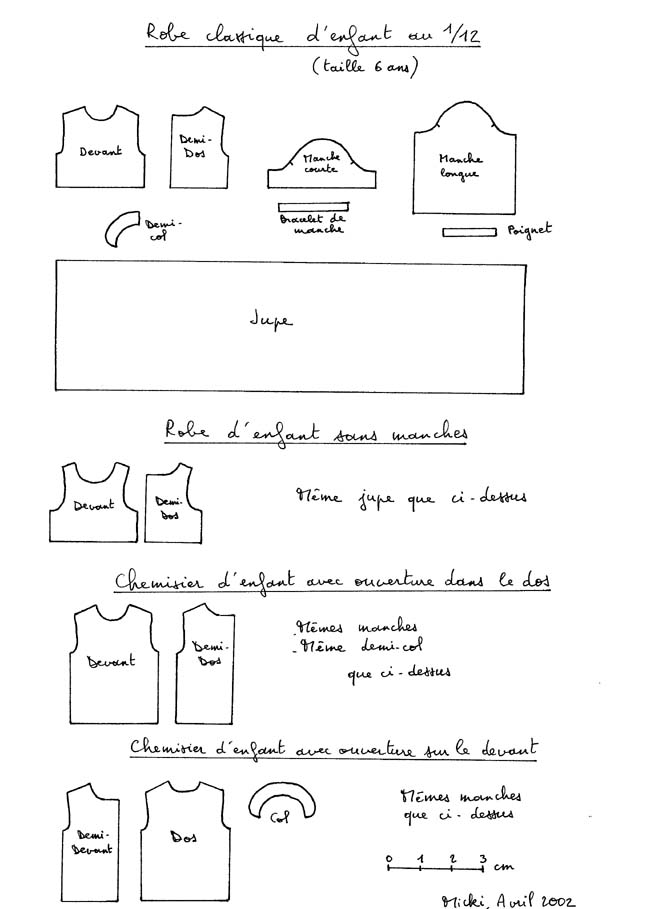 Robe classique d'enfant au 1/12
(taille 6 ans)
Devant
Demi-
Dos
Manche
courte
Manche
longue
Demi-
col
Bracelet de
manche
Poignet
Jupe
Robe d'enfant sans manches
Devant
Demi-
Dos
Même jupe que ci-dessus
Chemisier d'enfant avec ouverture dans le dos
Devant
Demi-
Dos
- Mêmes manches
- Même demi-col
que ci-dessus
Chemisier d'enfant avec ouverture sur le devant
Demi-
Devant
Dos
Col
Mêmes manches
que ci-dessus
0 1 2 3 cm
Micki, Avril 2002